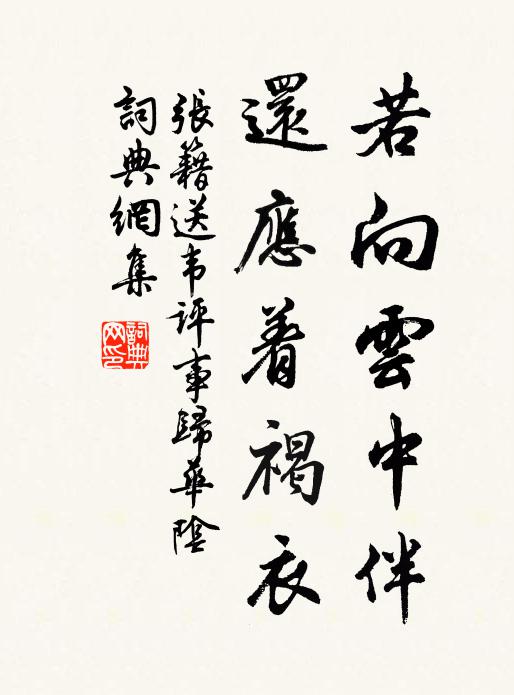 若向雲中伴
還應着褐衣
張籍送韦评事歸華陰
詞典網集
詞典网印